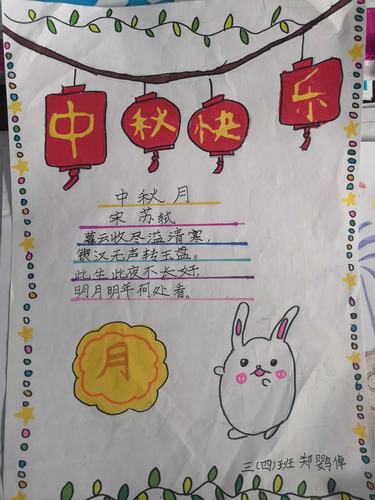 中秋快乐
中秋月
宋 苏轼
暮云收尽溢清寒,
银汉无声转玉盘。
此生此夜不长好,
明月明年何处看。
月
三(四)班 郑鹦倬